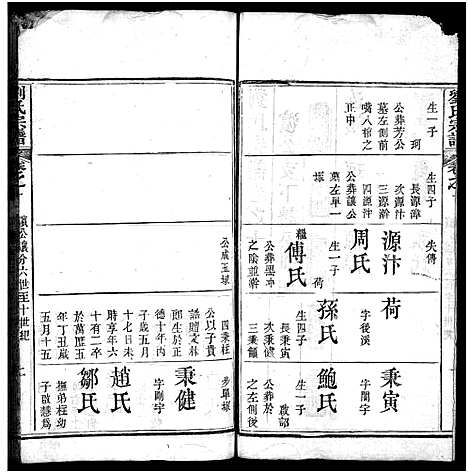 劉氏宗譜
卷之
生一子 珂
公葬芳公
墓左側前
嘴八相之
正中
失傳
生四子
長源漳
次源滸
三源澣
四源汴
公葬讓公
墓左單一
塚
源汴
周氏
生一子
荷
繼
傅氏
公葬羅冲
之陰並澣
荷
字後溪
孫氏
生四子
長秉寅
次秉剛
三秉鎻
秉寅
字同宇
鮑氏
生一子
啟部
公葬於荷
之左側後
步單塚
秉健
字剛宇
趙氏
鄒氏
撫弟桂幼
子啟慧爲
公成玉壙
四秉柱
公以子貴
誥贈文林
德十年丙
子歲五月
十七日未
時享年六
十有二卒
於萬歷五
年丁丑歲
五月十五
劉氏宗譜
卷之
濱公讓分六世至十世紀